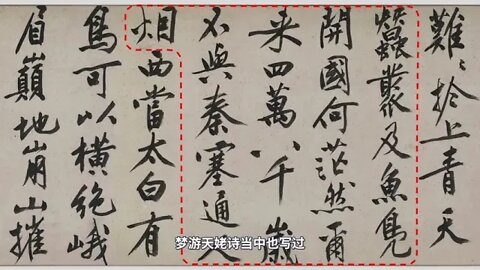 難〻於上青天
蠶叢及魚鳧
開國何茫然爾
来四萬八千歲
不與秦塞通人
烟西當太白有
鳥可以橫絶峨
眉巔地崩山摧
梦游天姥诗当中也写过